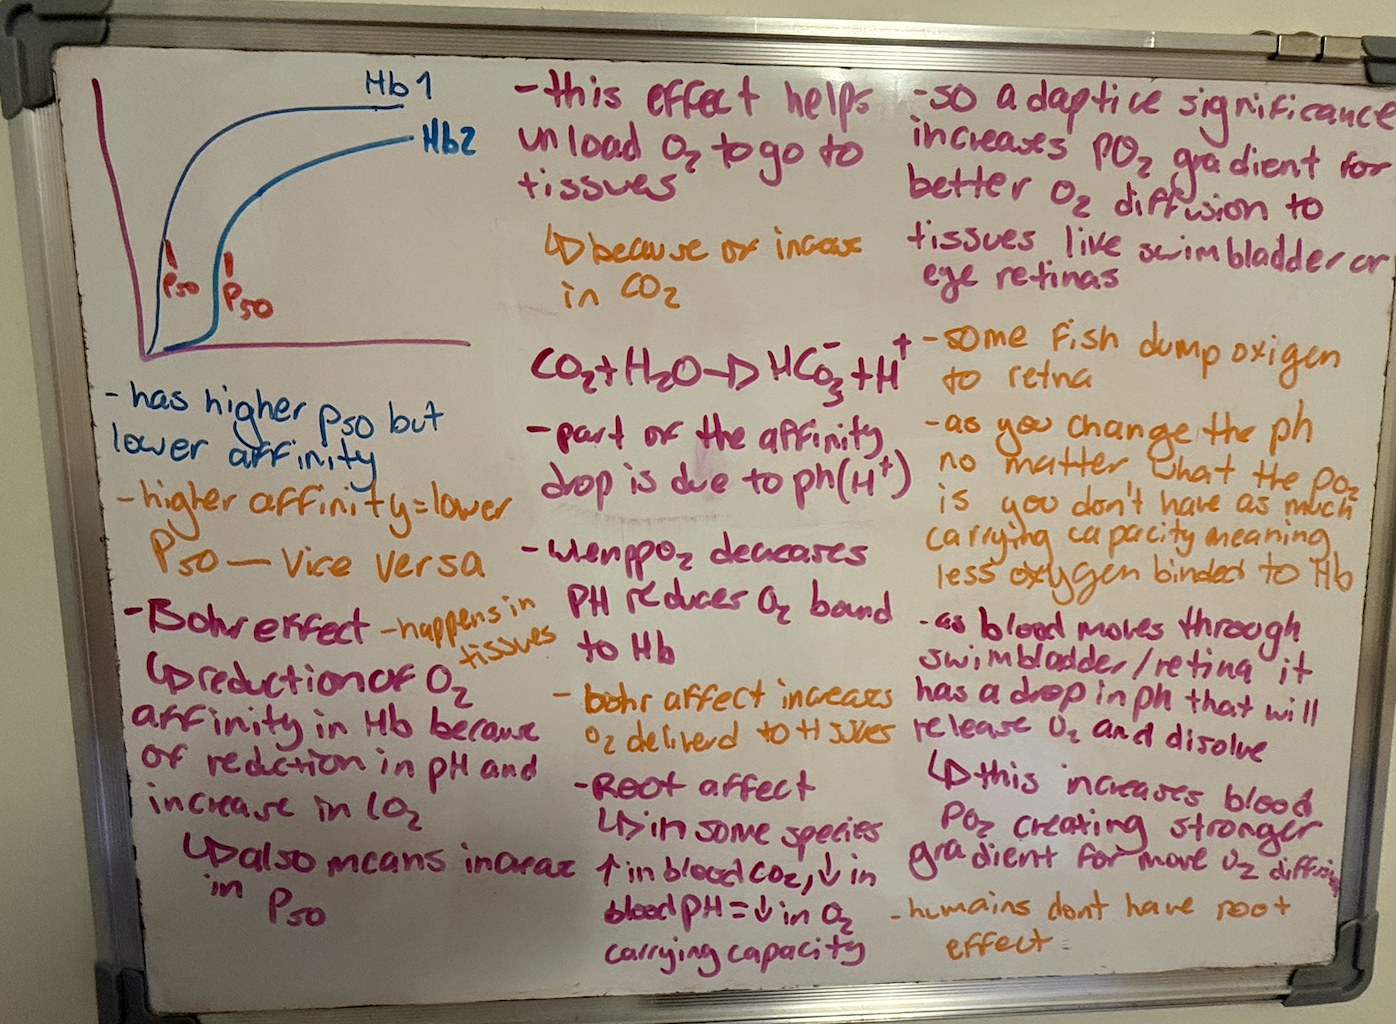 Hb1
Hb2
P50
P50
-has higher P50 but
lower affinity
-higher affinity=lower
P50 — Vice Versa
-Bohr effect -happens in
tissues
↳reduction of O2
affinity in Hb because
of reduction in pH and
increase in CO2
↳also means increase
in
P50
-this effect helps
unload O2 to go to
tissues
↳because of increase
in CO2
CO2+H2O→HCO3-+H+
-part of the affinity
drop is due to ph(H+)
-when ppO2 decreases
PH reduces O2 band
to Hb
-bohr affect increases
O2 deliverd to tissues
-Root affect
↳in some species
↑ in blood CO2, ↓ in
blood pH = ↓ in O2
carrying capacity
-so adaptice significance
increases PO2 gradient for
better O2 diffusion to
tissues like swimbladder or
eye retinas
-some Fish dump oxigen
to retna
-as you change the ph
no matter what the PO2
is you don't have as much
carrying capacity meaning
less oxygen binded to Hb
-as blood moves through
swimbladder/retina it
has a drop in ph that will
release O2 and disolve
↳this increases blood
PO2 creating stronger
gradient for more O2
-humains dont have root
effect